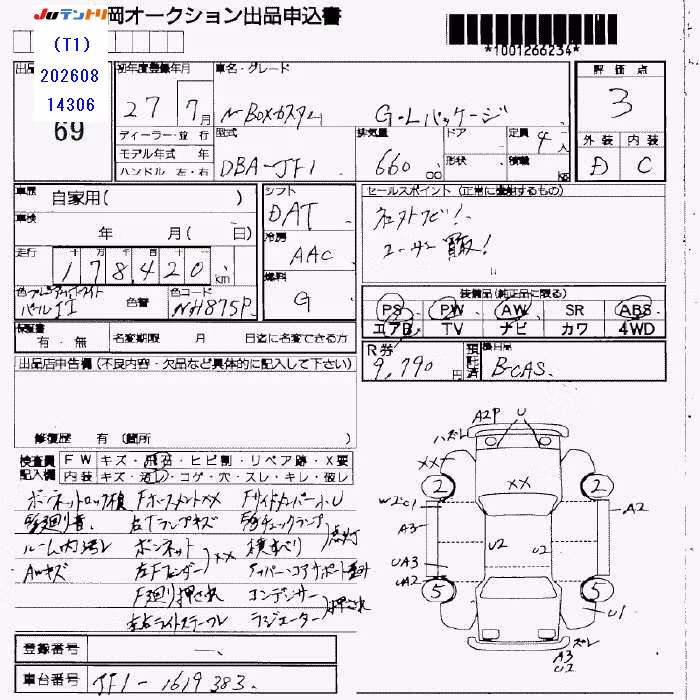 JUテントリ 岡オークション出品申込書
(T1)
202608
14306
*1001266234*
出品
69
初年度登録年月
27 年 7 月
車名・グレード
N-BOXカスタム G・Lパッケージ
評価点
3
外装 内装
D C
ディーラー・並行
モデル年式 年
ハンドル 左・右
型式
DBA-JF1
排気量
660 cc
ドア
形状
定員
4人
積載
kg
車歴
自家用( )
車検
年 月( 日)
走行
178,420 km
色 プレミアムホワイトパールII
色替
色コード
NH875P
シフト
DAT
冷房
AAC
燃料
G
セールスポイント (正常に機能するもの)
ユーザー買取!
装備品(純正品に限る)
PS PW AW SR ABS
エアB TV ナビ カワ 4WD
保証書
有・無
名変期限 月 日迄に名変できる方
R券
9,790円
預託済
後日品
B-CAS
出品店申告欄(不良内容・欠品など具体的に記入して下さい)
修復歴 有 (箇所
検査員記入欄
FW キズ・飛石・ヒビ割・リペア跡・X要
内装 キズ・汚レ・コゲ・穴・スレ・キレ・破レ
ボンネットロック錆 Fガーニッシュ××
左Tランプキズ チェックランプ点灯
ルーム内汚レ ボンネット 左Fフェンダー ××
AWキズ アッパーコアサポート歪み
F廻り押され コンデンサー ラジエーター 押され
左右ライトステーズレ
A2P U
ハズレ
×× ××
2 2
W2C1 A2
A3
U2 U2
UA3
UA2
5 5
U1
ズレ
A3
U2
登録番号
車台番号 JF1-1619383